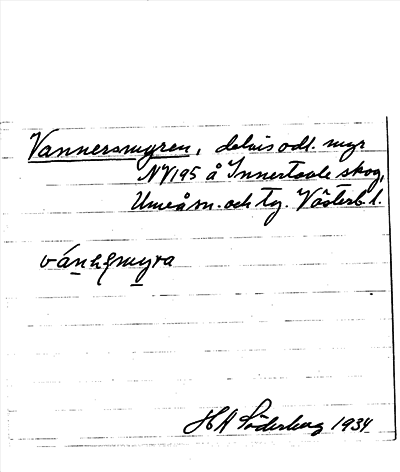 Vannersmyren, delvis odl. myr
NV195 å Innertavle skog,
Umeå sn. och tg. Västerb. l.
HA Söderberg 1934